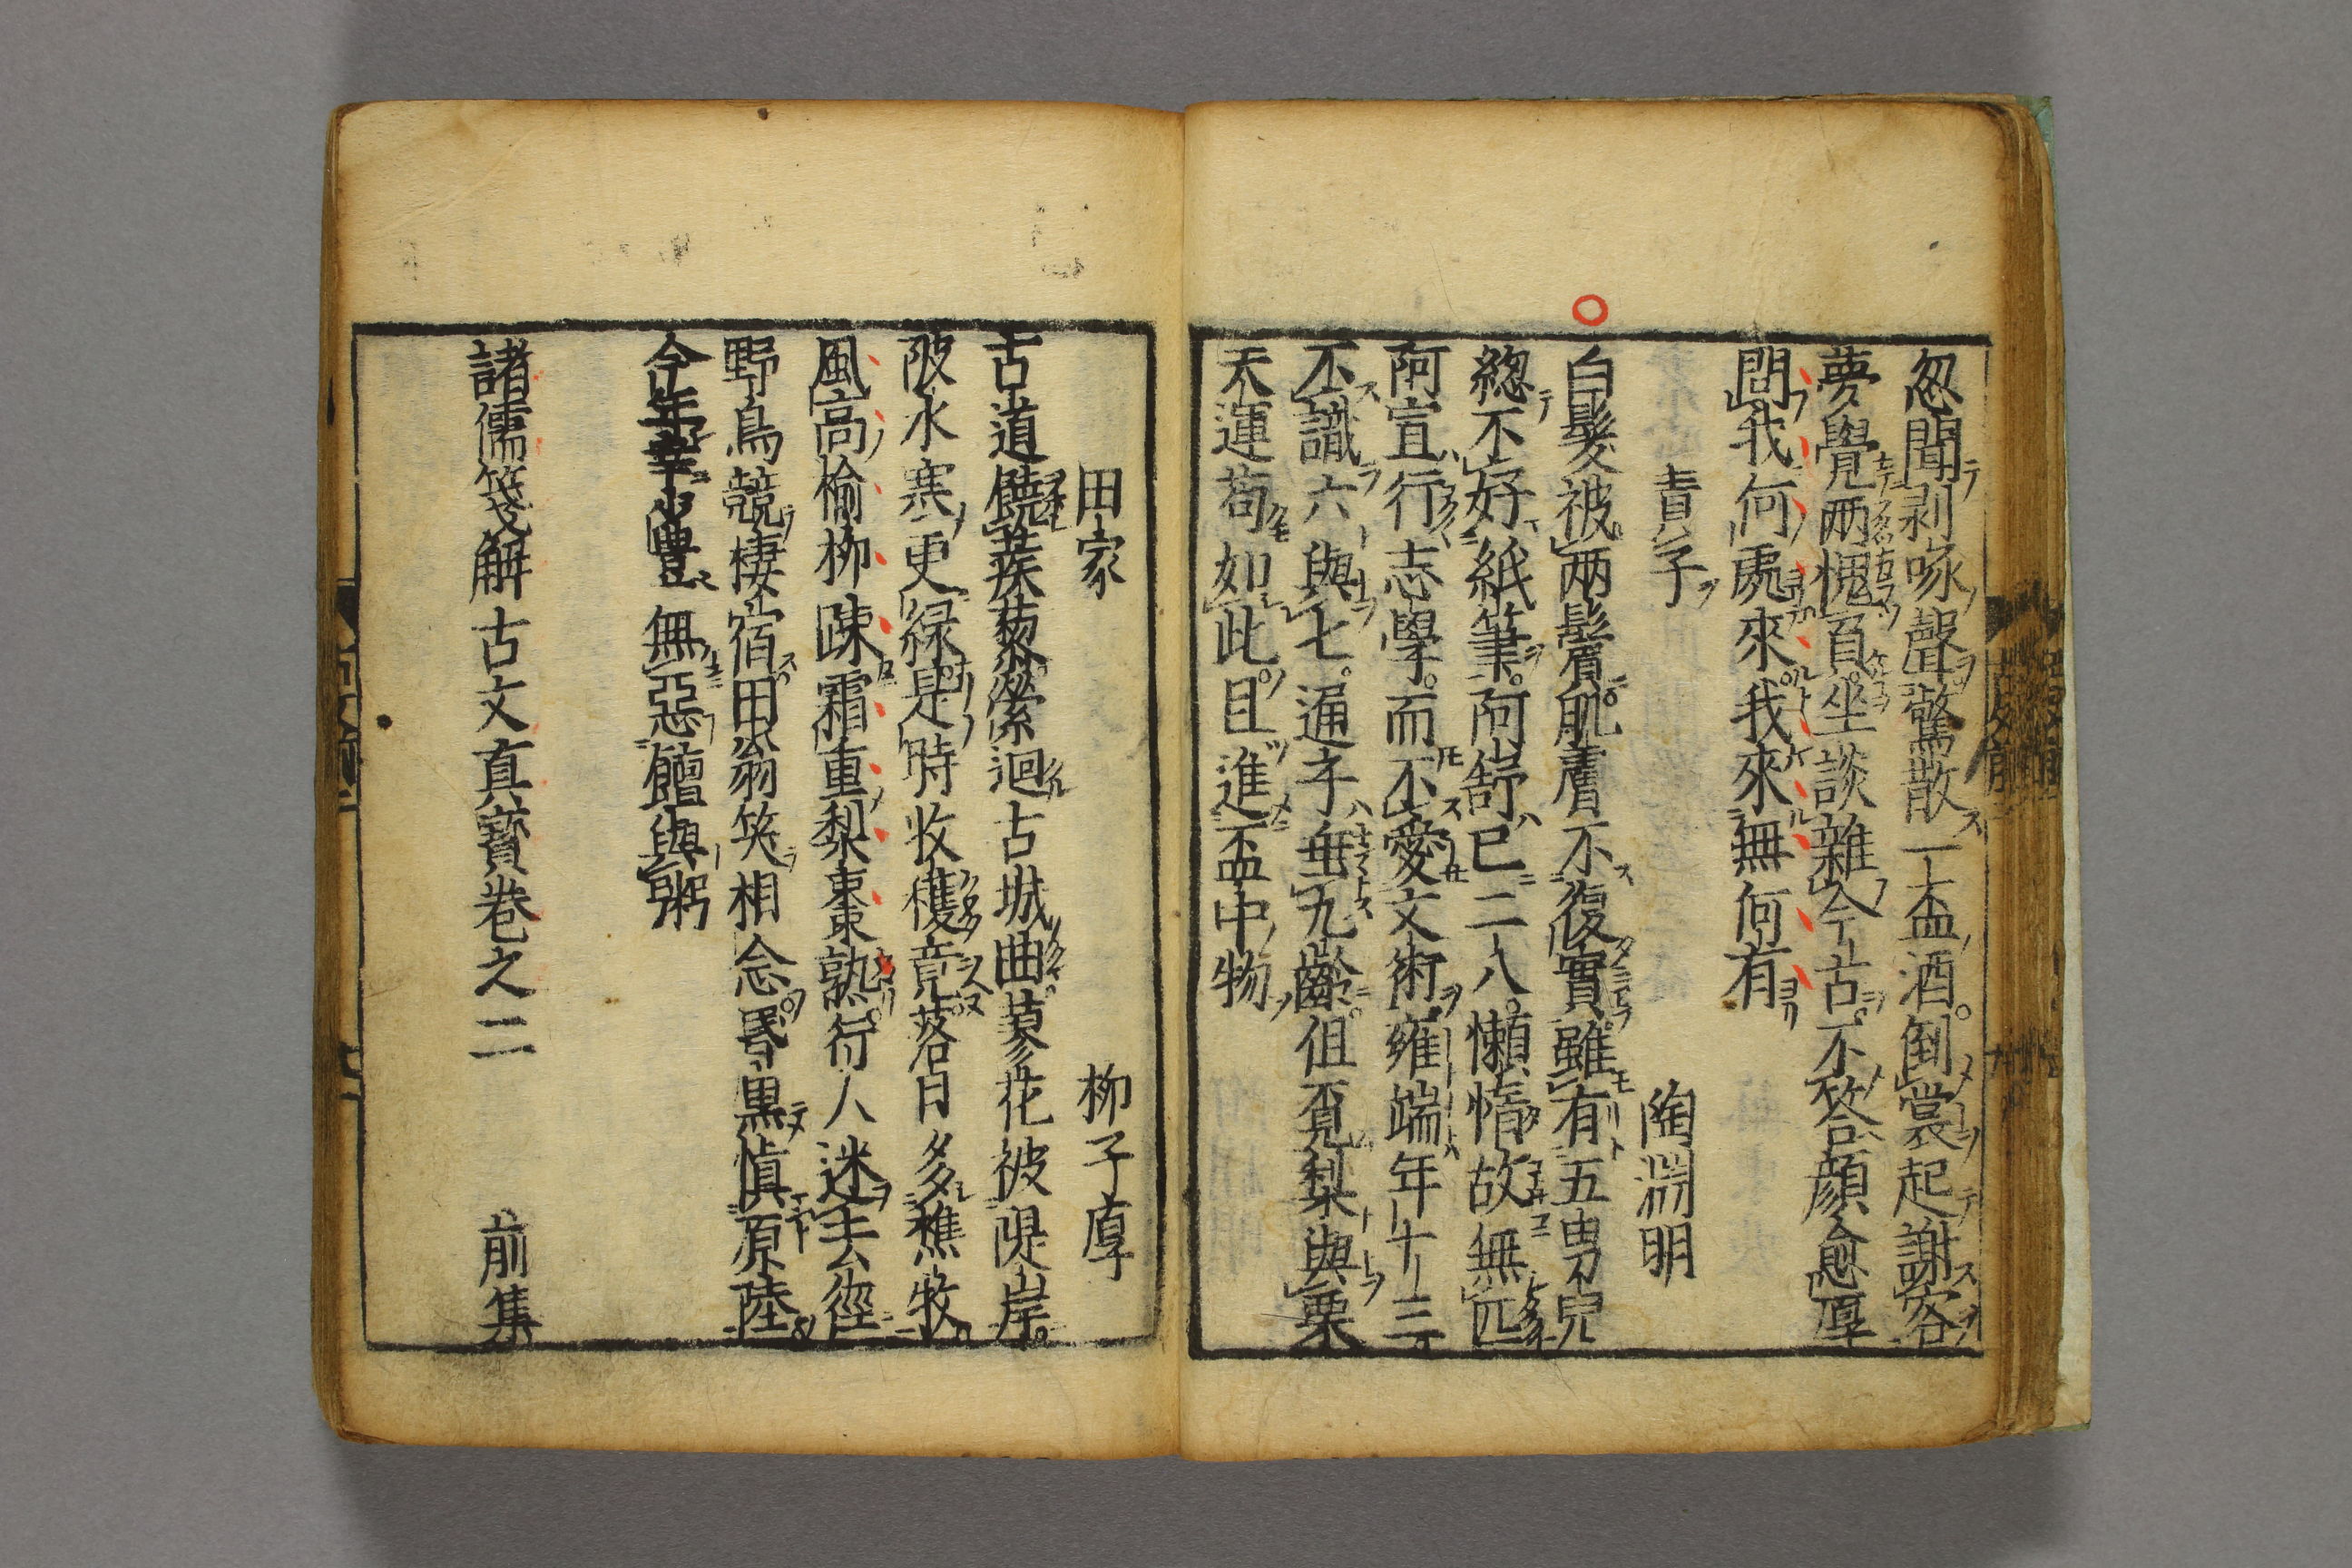 忽聞剥啄聲驚散一盃酒倒裳起謝客
夢覺兩愧負坐談雜今古不答顔愈厚
問我何處來我來無何有
責子　陶淵明
白髮被兩鬢肌膚不復實雖有五男兒
總不好紙筆阿舒已二八懶惰故無匹
阿宣行志學而不愛文術雍端年十三
不識六與七通子垂九齡但覓梨與栗
天運苟如此且進盃中物
田家　柳子厚
古道饒蒺藜縈迴古城曲蓼花被隄岸
陂水寒更緑是時收穫竟落日多樵牧
風高榆柳踈霜重梨棗熟行人迷去徑
野鳥競棲宿田翁笑相念昏黒慎原陸
今年幸少豊無惡饘與粥
諸儒箋解古文真寳卷之二　前集